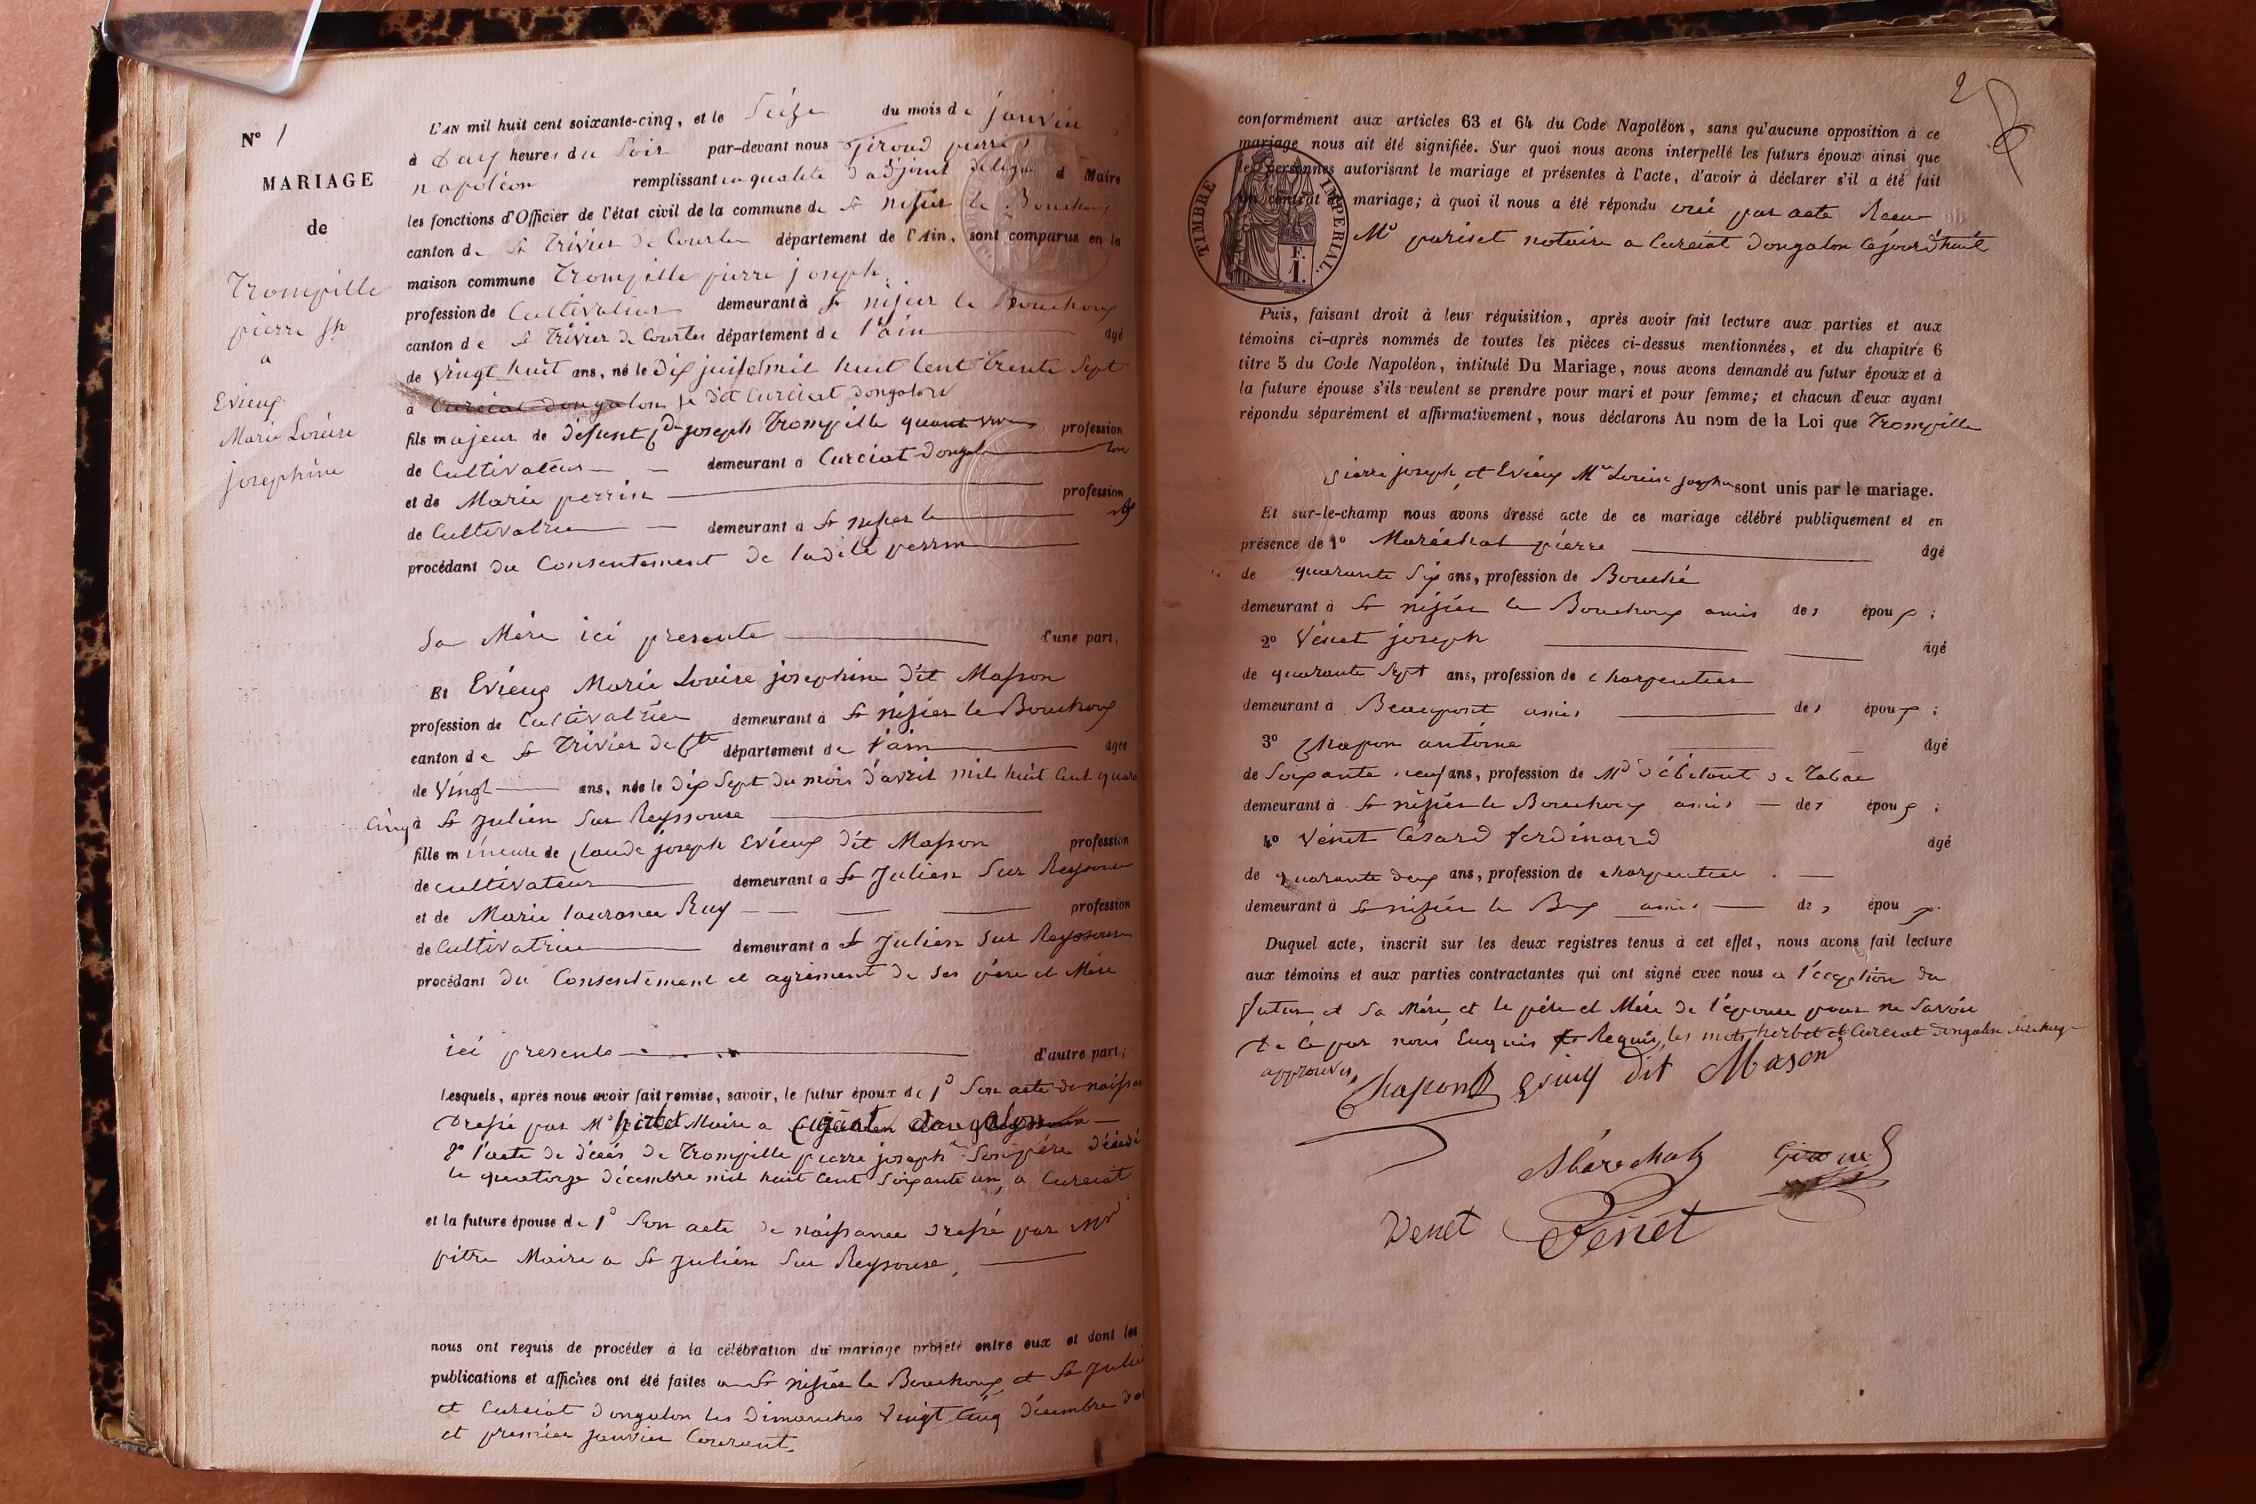 N° 1
MARIAGE
de
Trompille
pierre jh
a
Evieux
Marie Louise
josephine
L'AN mil huit cent soixante-cinq, et le Seize du mois de janvier
à Deux heures du Soir par-devant nous Giroud pierre
napoléon remplissant en qualité d'adjoint délégué d Maire
les fonctions d'Officier de l'état civil de la commune de St nizier le Bouchoux
canton de St Trivier de Courtes département de l'Ain, sont comparus en la
maison commune Trompille pierre joseph
profession de Cultivateur demeurant à St nizier le Bouchoux
canton de St Trivier de Courtes département de l'ain âgé
de vingt huit ans, né le dix juillet mil huit cent trente sept
à Curciat dongalon dit Curciat dongalon
fils majeur de défunt joseph Trompille quant vivait profession
de Cultivateur demeurant à Curciat Dongalon
et de Marie perrin profession
de Cultivatrice demeurant à St nizier le
procédant du Consentement de ladite perrin
Sa Mère ici presente d'une part,
Et Evieux Marie Louise josephine dit Masson
profession de Cultivatrice demeurant à St nizier le Bouchoux
canton de St Trivier de Ctes département de l'ain âgée
de Vingt ans, née le dix Sept du mois d'avril mil huit Cent quara
Cinq à St Julien Sur Reyssouse
fille mineure de Claude joseph Evieux dit Masson profession
de Cultivateur demeurant à St Julien Sur Reyssouse
et de Marie laurance Ruy profession
de Cultivatrice demeurant à St Julien Sur Reyssouse
procédant du Consentement et agrement de ses père et Mère
ici presents d'autre part;
Lesquels, après nous avoir fait remise, savoir, le futur époux de 1° Son acte de naissan
Dressé par Mr herbet Maire a Curciat dongalon
2° l'acte de décès de Trompille pierre joseph Son père décédé
le quatorze décembre mil huit Cent Soixante un, a Curciat
et la future épouse de 1° Son acte de naissance dressé par Mr
pitre Maire a St Julien Sur Reyssouse,
nous ont requis de procéder à la célébration du mariage projeté entre eux et dont les
publications et affiches ont été faites a St nizier le Bouchoux et St Julien
et Curciat dongalon les Dimanches Vingt Cinq décembre
et premier janvier Courant.
2
conformément aux articles 63 et 64 du Code Napoléon, sans qu'aucune opposition à ce
mariage nous ait été signifiée. Sur quoi nous avons interpellé les futurs époux ainsi que
les personnes autorisant le mariage et présentes à l'acte, d'avoir à déclarer s'il a été fait
un contrat de mariage; à quoi il nous a été répondu oui par acte Recu
Me pariset notaire a Curciat dongalon Cejourd'huit
TIMBRE IMPÉRIAL.
F.
1.
Puis, faisant droit à leur réquisition, après avoir fait lecture aux parties et aux
témoins ci-après nommés de toutes les pièces ci-dessus mentionnées, et du chapitre 6
titre 5 du Code Napoléon, intitulé Du Mariage, nous avons demandé au futur époux et à
la future épouse s'ils veulent se prendre pour mari et pour femme; et chacun d'eux ayant
répondu séparément et affirmativement, nous déclarons Au nom de la Loi que Trompille
pierre joseph, et Evieux Mie Louise josephine sont unis par le mariage.
Et sur-le-champ nous avons dressé acte de ce mariage célébré publiquement et en
présence de 1° Maréchal pierre âgé
de quarante Six ans, profession de Bouché
demeurant à St nizier le Bouchoux amis des époux;
2° Vénet joseph âgé
de quarante Sept ans, profession de charpentier
demeurant à Beaupont amis des époux;
3° Chapon antoine âgé
de Soixante neuf ans, profession de Md débitant de Tabac
demeurant à St nizier le Bouchoux amis des époux;
4° Vénet Césard ferdinand âgé
de quarante deux ans, profession de charpentier
demeurant à St nizier le Bx amis des époux.
Duquel acte, inscrit sur les deux registres tenus à cet effet, nous avons fait lecture
aux témoins et aux parties contractantes qui ont signé avec nous a l'éception du
futur, et Sa Mère, et le père et Mère de l'épouse pour ne Savoir
de Ce par nous Enquis Requis, les mots herbet et Curciat dongalon
approuvés,
Chapon Evieux dit Mason
Marechal Giroud
Venet Vénet